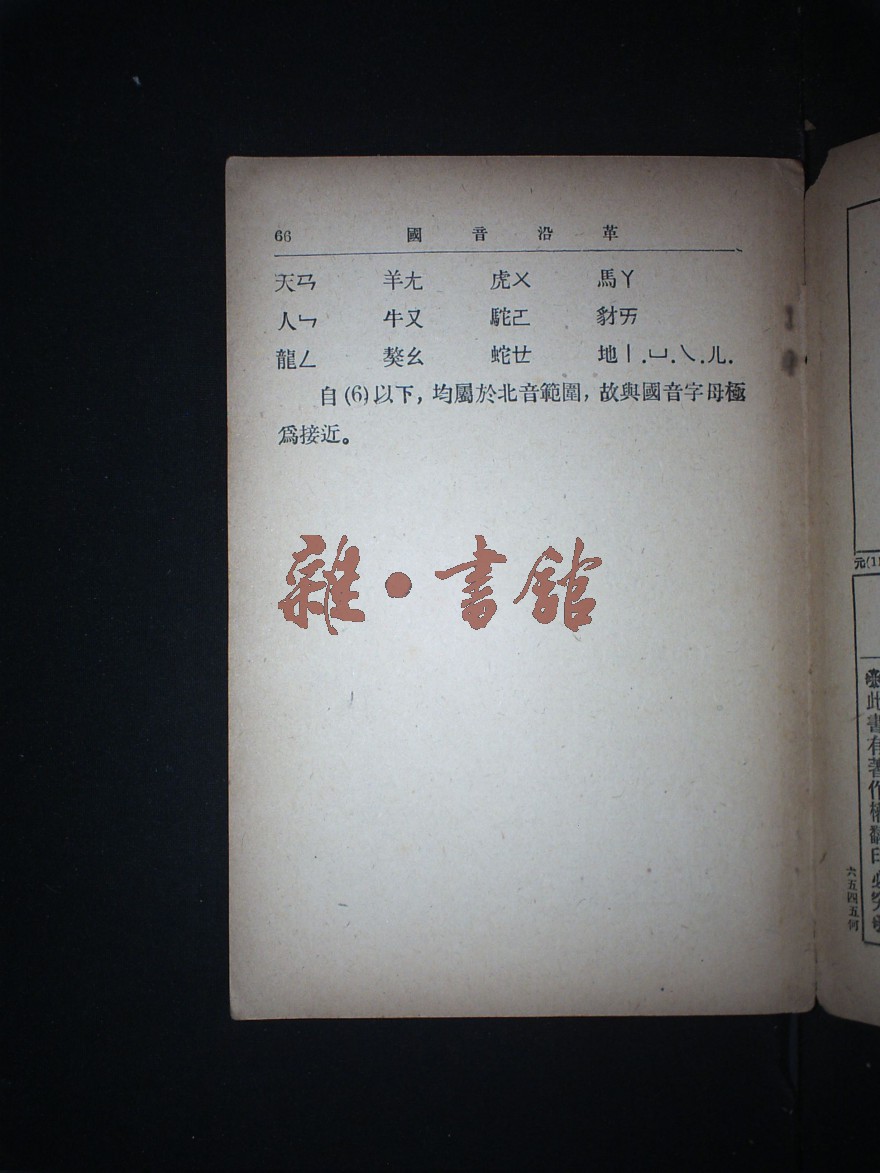 66 國音沿革
天ㄢ 羊ㄤ 虎ㄨ 馬ㄚ
人ㄣ 牛ㄡ 駝ㄛ 豺ㄞ
龍ㄥ 獒ㄠ 蛇ㄝ 地丨.ㄩ.ㄟ.ㄦ.
自(6)以下，均屬於北音範圍，故與國音字母極
爲接近。
雜•書館
元(11
此書有著作權翻印必究
六五四五何